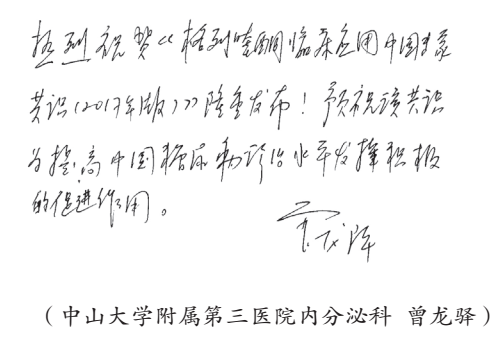 热烈祝贺《格列喹酮临床应用中国专家
共识(2017年版)》隆重发布!预祝该共识
为提高中国糖尿病诊治水平发挥积极
的促进作用。
曾龙驿
(中山大学附属第三医院内分泌科 曾龙驿)